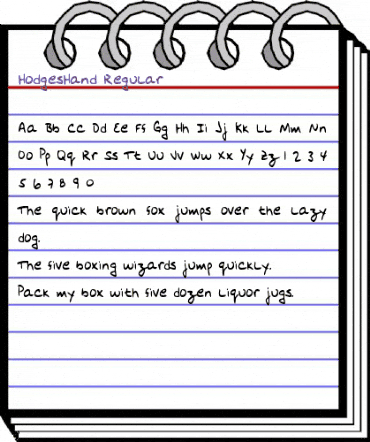 HodgesHand Regular
Aa Bb Cc Dd Ee Ff Gg Hh Ii Jj Kk LL Mm Nn
Oo Pp Qq Rr Ss Tt Uu Vv Ww Xx Yy Zz 1 2 3 4
5 6 7 8 9 0
The quick brown fox jumps over the Lazy
dog.
The five boxing wizards jump quickly.
Pack my box with five dozen Liquor jugs.